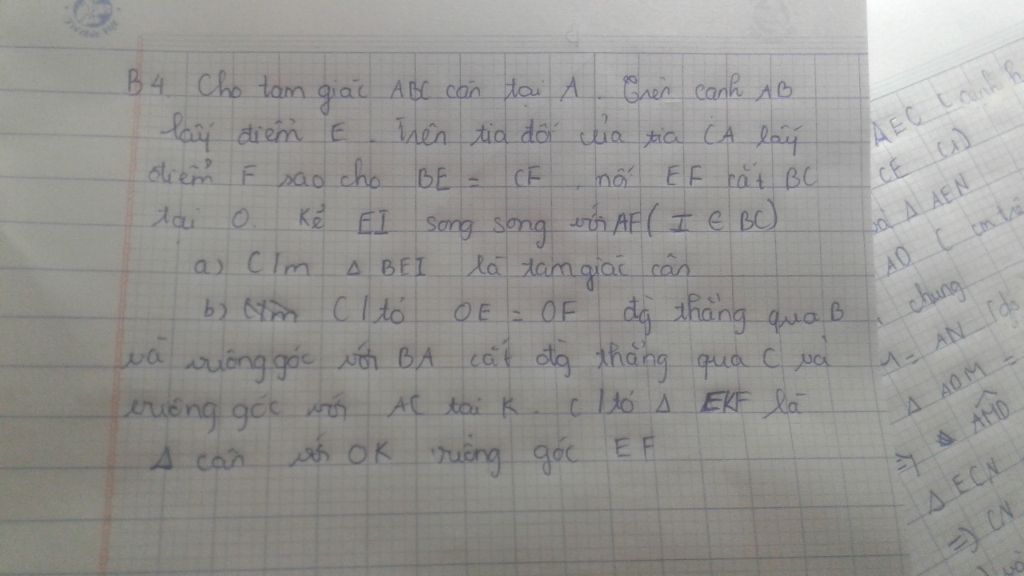 B4. Cho tam giác ABC cân tại A. Trên cạnh AB
lấy điểm E. Trên tia đối của tia CA lấy
điểm F sao cho BE = CF, nối EF cắt BC
tại O. Kẻ EI song song với AF ( I ∈ BC)
a) C/m Δ BEI là tam giác cân
b) C/tỏ OE = OF đg thẳng qua B
và vuông góc với BA cắt đg thẳng qua C và
vuông góc với AC tại K. C/tỏ Δ EKF là
Δ cân với OK vuông góc EF
Δ EC
CE (1)
Δ AEN
AO (
chung
= AN
Δ AOM =
=> AMO
Δ ECN
=> CN